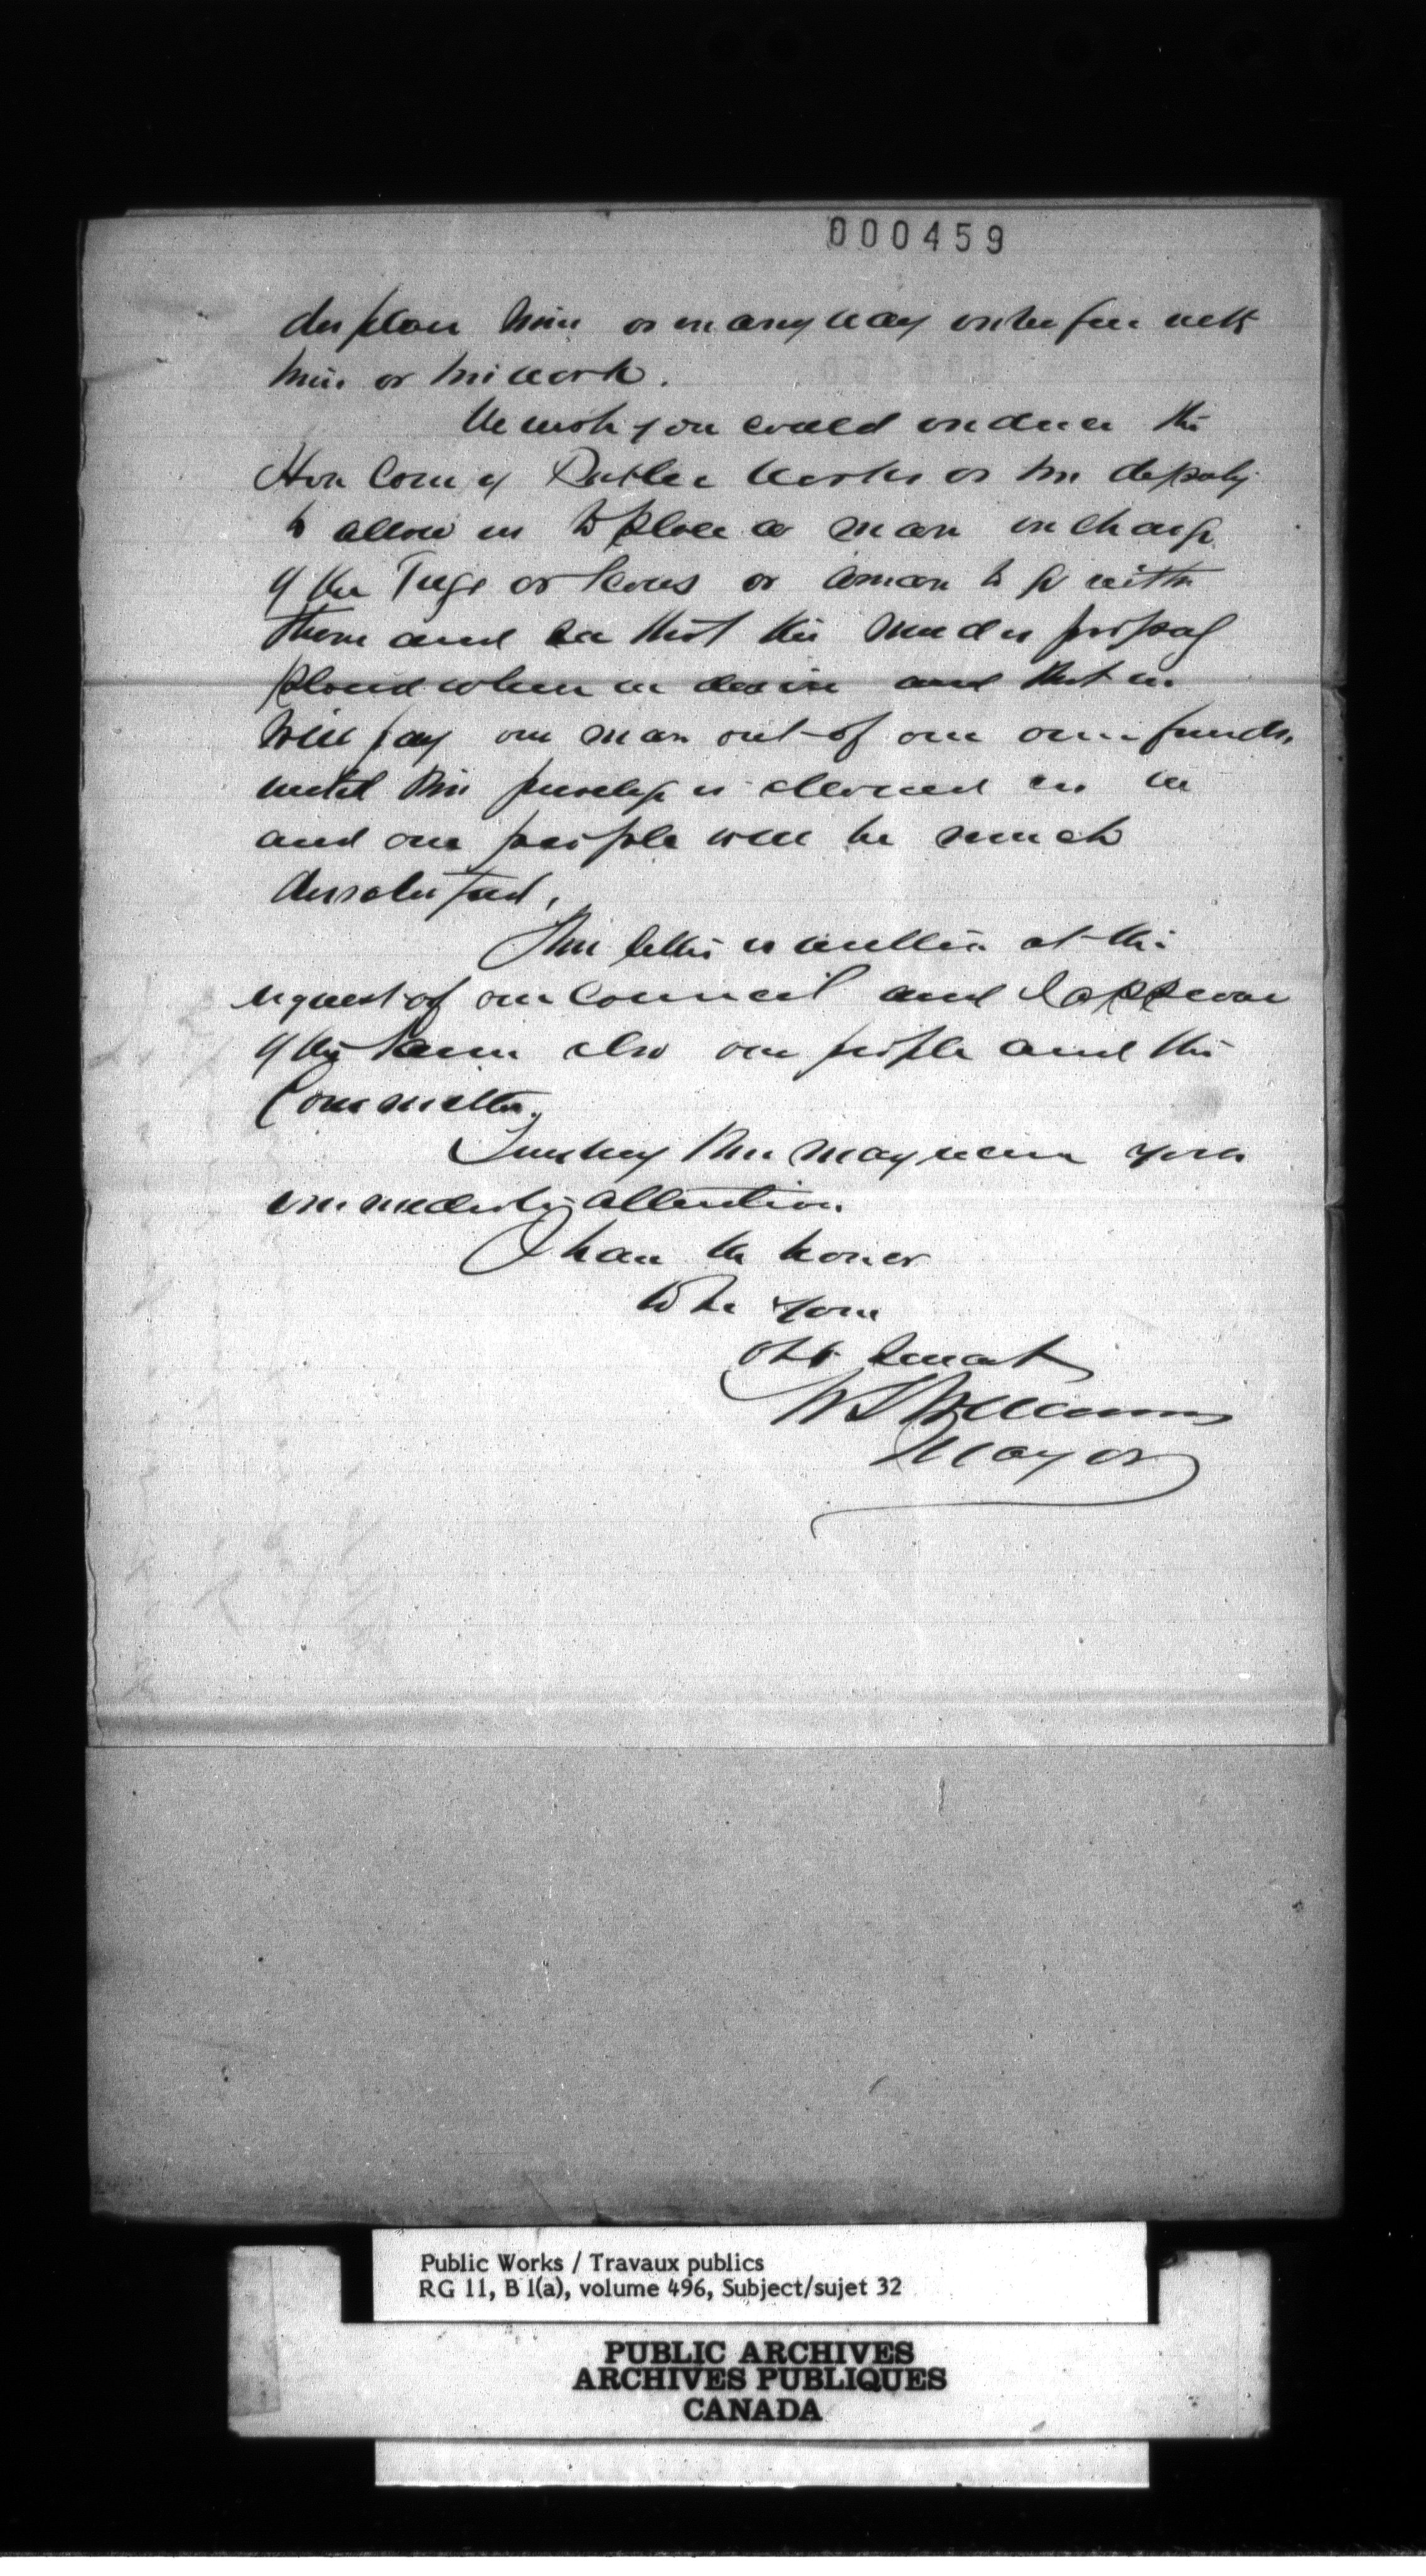 000459
displace him or in any way interfere with
him or his work.
We wish you could induce the
Hon Com of Public Works or his deputy
to allow us to place a man in charge
of the Tugs or Scows or a man to go with
them and see that the mud is properly
placed where we desire and that we
will pay our man out of our own funds,
until this privilege is allowed us we
and our people will be much
dissatisfied,
This letter is written at the
request of our Council and I approve
of the same also our people and the
Committee.
Trusting this may receive your
immediate attention.
I have the honor
to be your
obt Servant
Williams
Mayor
Public Works / Travaux publics
RG 11, B 1(a), volume 496, Subject/sujet 32
PUBLIC ARCHIVES
ARCHIVES PUBLIQUES
CANADA